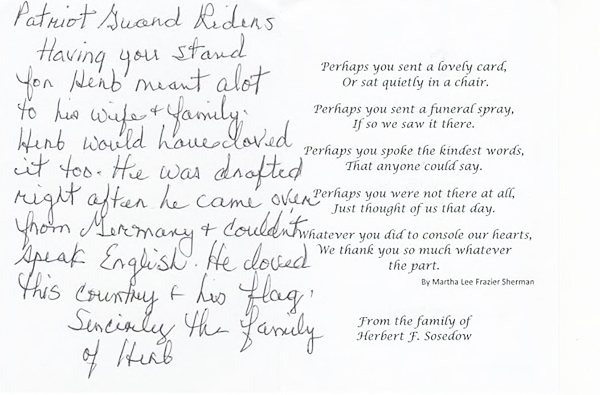 Patriot Guard Riders
Having you stand
for Herb meant alot
to his wife & family.
Herb would have loved
it too. He was drafted
right after he came over
from Germany & couldn't
speak English. He loved
this country & his flag.
Sincerely the family
of Herb
Perhaps you sent a lovely card,
Or sat quietly in a chair.
Perhaps you sent a funeral spray,
If so we saw it there.
Perhaps you spoke the kindest words,
That anyone could say.
Perhaps you were not there at all,
Just thought of us that day.
Whatever you did to console our hearts,
We thank you so much whatever
the part.
By Martha Lee Frazier Sherman
From the family of
Herbert F. Sosedow